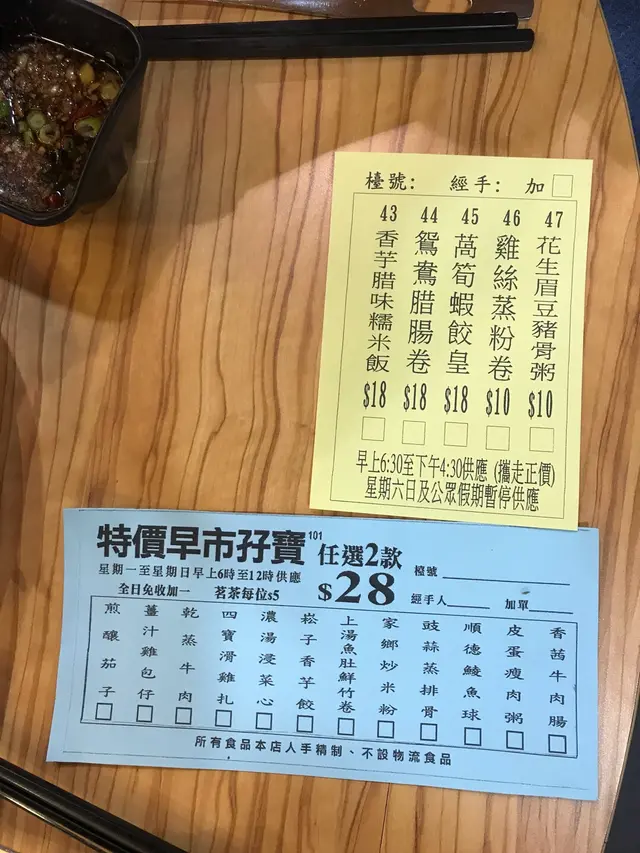 檯號： 經手： 加
43 44 45 46 47
香芋腊味糯米飯
鴛鴦腊腸卷
萵筍蝦餃皇
雞絲蒸粉卷
花生眉豆豬骨粥
$18 $18 $18 $10 $10
早上6:30至下午4:30供應 (攜走正價)
星期六日及公眾假期暫停供應
特價早市孖寶 101 任選2款
星期一至星期日早上6時至12時供應
檯號
全日免收加一 茗茶每位$5
$28
經手人 加單
煎釀茄子
薑汁雞包仔
乾蒸牛肉
四寶滑雞扎
濃湯浸菜心
崧子香芋餃
上湯魚肚鮮竹卷
家鄉炒米粉
豉蒜蒸排骨
順德鯪魚球
皮蛋瘦肉粥
香茜牛肉腸
所有食品本店人手精制、不設物流食品